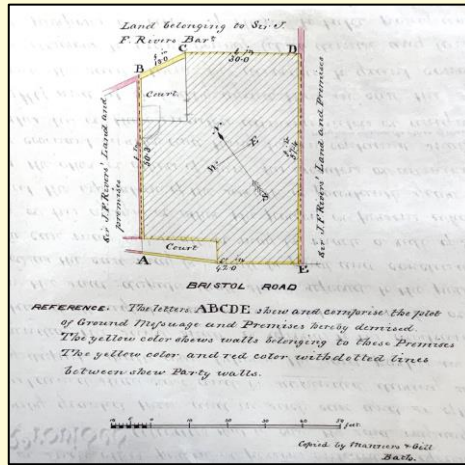 Land belonging to Sir J.
F. Rivers Bart
C
D
ft in
30.0
B
Court
Sir J.F. Rivers' Land and
premises
Sir J.F. Rivers' Land and Premises
Court
A
ft in
42.0
E
BRISTOL ROAD
REFERENCE: The letters ABCDE shew and comprise the plot
of Ground Messuage and Premises hereby demised.
The yellow color shews walls belonging to these Premises
The yellow color and red color with dotted lines
between shew Party walls.
feet
Copied by Manners & Gill
Bath.